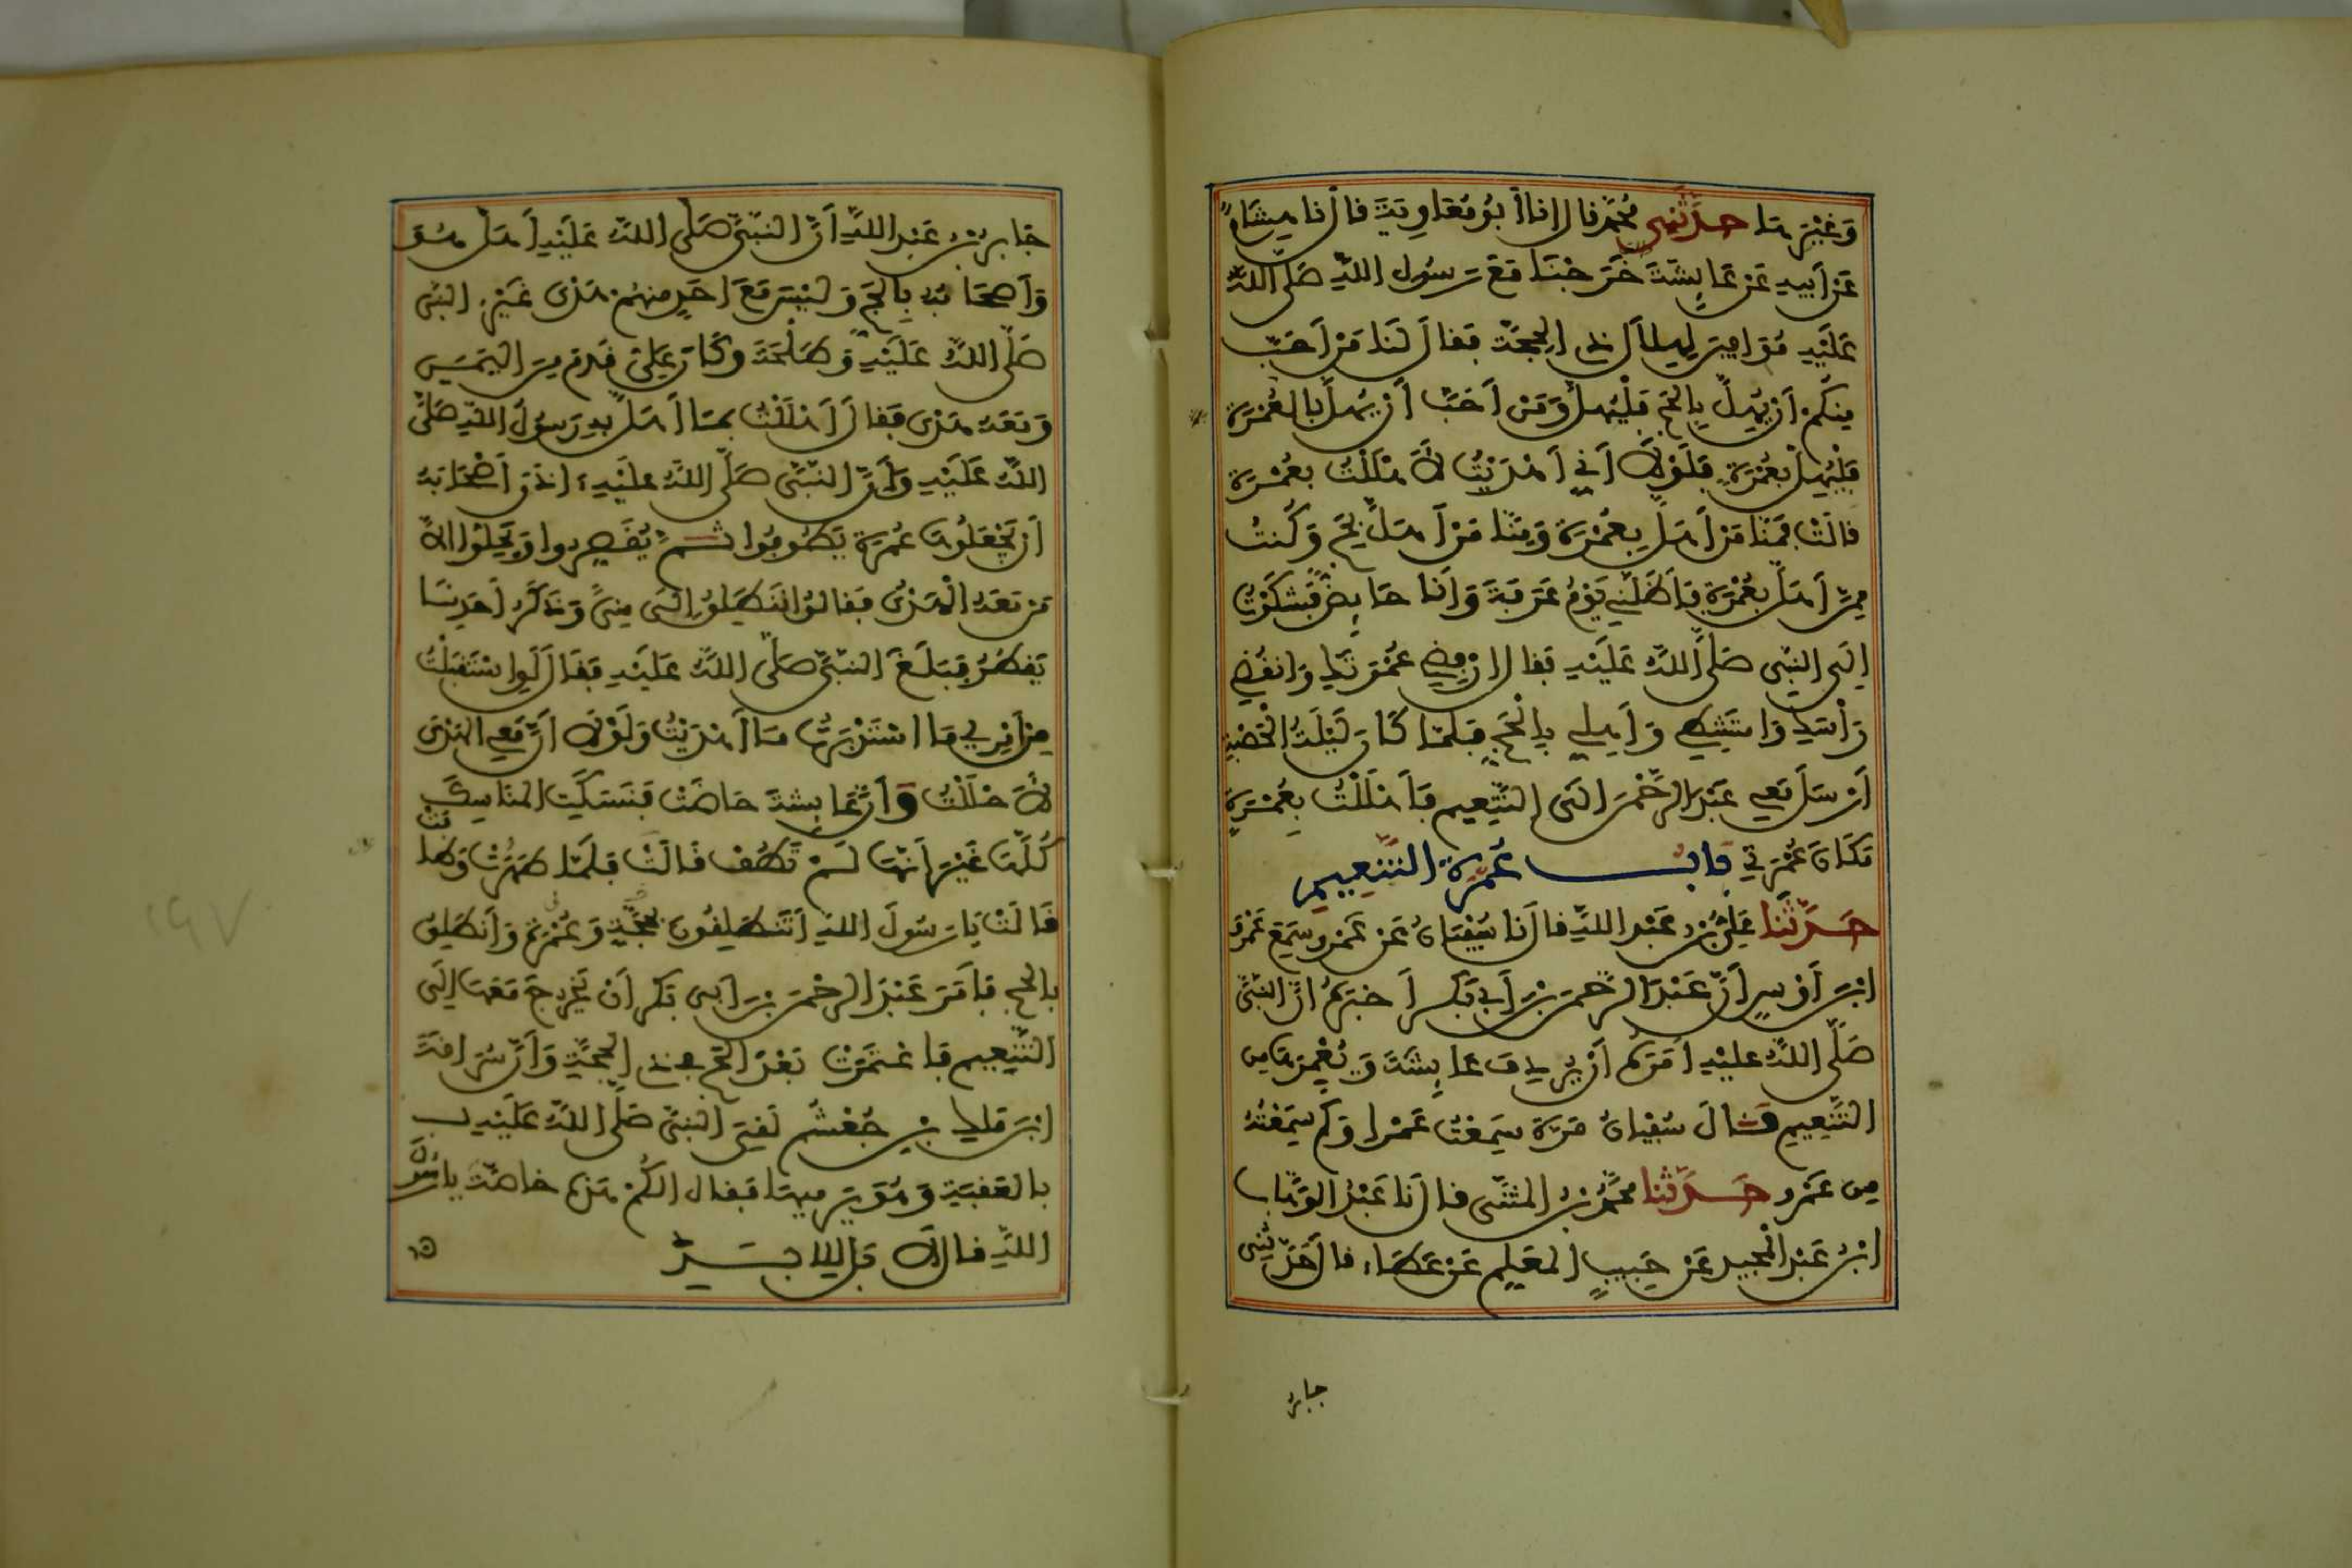 وَغَيْرِهَا حَدَّثَنِي مُحَمَّد قال انا أبُو مُعَاوِيَةَ قال نا هِشَامٌ
عَنْ أبِيهِ عَنْ عَائِشَةَ خَرَجْنَا مَعَ رَسُولِ اللَّهِ صَلَّى اللَّهُ
عَلَيْهِ مُوَافِينَ لِهِلَالِ ذِي الحِجَّة فقال لَنَا مَنْ أَحَبَّ
مِنْكُمْ أَنْ يُهِلَّ بِالحَجِّ فَلْيُهِلَّ وَمَنْ أَحَبَّ أَنْ يُهِلَّ بالعُمْرَةِ
فَلْيُهِلَّ بِعُمْرَةٍ فَلَوْلَا أَنِّي أَهْدَيْتُ لَأَهْلَلْتُ بِعُمْرَةٍ
قالَتْ فَمِنَّا مَنْ أَهَلَّ بِعُمْرَةٍ وَمِنَّا مَنْ أَهَلَّ بِحَجٍّ وَكُنْتُ
مِمَّنْ أَهَلَّ بِعُمْرَةٍ فَأَظَلَّنِي يَوْمُ عَرَفَةَ وَأَنَا حَائِضٌ فَشَكَوْتُ
إلَى النَّبِي صَلَّى اللَّهُ عَلَيْهِ فقال ارْفِضِي عُمْرَتَكِ وَانْقُضِي
رَأْسَكِ وَامْتَشِطِي وَأَهِلِّي بِالْحَجِّ فَلَمَّا كَانَ لَيْلَةُ الْحَصْبَةِ
أَرْسَلَ مَعِي عَبْدَ الرَّحْمَنِ إلَى التَّنْعِيمِ فَأَهْلَلْتُ بِعُمْرَةٍ
مَكَانَ عُمْرَتِي بابُ عُمْرَةِ التَّنْعِيمِ
حَدَّثَنَا عَلِيُّ بْنُ عَبْدِ اللَّهِ قال نا سُفْيَانُ عَنْ عَمْرٍو سَمِعَ عَمْرَو
ابْنَ أَوْسٍ أَنَّ عَبْدَ الرَّحْمَنِ بْنَ أَبِي بَكْرٍ أَخْبَرَهُ أَنَّ النَّبِيَّ
صَلَّى اللَّهُ عَلَيْهِ أَمَرَهُ أَنْ يُرْدِفَ عَائِشَةَ وَيُعْمِرَهَا مِنَ
التَّنْعِيمِ قَالَ سُفْيَانُ مَرَّةً سَمِعْتُ عَمْرًا وَكَمْ سَمِعْتُهُ
مِنْ عَمْرٍو حَدَّثَنَا مُحَمَّدُ بْنُ المُثَنَّى قال نَا عَبْدُ الوَهَّابِ
ابْنُ عَبْدِ المَجِيدِ عَنْ حَبِيبٍ المُعَلِّمِ عَنْ عَطَاءٍ قال حَدَّثَنِي
جابر
جَابِرُ بْنُ عَبْدِ اللَّهِ أَنَّ النَّبِيَّ صَلَّى اللَّهُ عَلَيْهِ أَهَلَّ هُوَ
وَأَصْحَابُهُ بِالحَجِّ وَلَيْسَ مَعَ أَحَدٍ مِنْهُمْ هَدْيٌ غَيْرَ النَّبِي
صَلَّى اللَّهُ عَلَيْهِ وَطَلْحَةَ وَكَانَ عَلِيٌّ قَدِمَ مِنَ اليَمَنِ
وَمَعَهُ هَدْيٌ فَقَالَ أَهْلَلْتُ بِمَا أَهَلَّ بِهِ رَسُولُ اللَّهِ صَلَّى
اللَّهُ عَلَيْهِ وَأَنَّ النَّبِيَّ صَلَّى اللَّهُ عَلَيْهِ أَذِنَ أَصْحَابَهُ
أَنْ يَجْعَلُوهَا عُمْرَةً يَطُوفُوا ثُمَّ يُقَصِّرُوا وَيَحِلُّوا إلَّا
مَنْ مَعَهُ الْهَدْيُ فقالوا نَنْطَلِقُ إلَى مِنًى وَذَكَرُ أَحَدِنَا
يَقْطُرُ فَبَلَغَ النَّبِيَّ صَلَّى اللَّهُ عَلَيْهِ فَقَالَ لَوِ اسْتَقْبَلْتُ
مِنْ أَمْرِي مَا اسْتَدْبَرْتُ مَا أَهْدَيْتُ وَلَوْلَا أَنَّ مَعِي الهَدْيَ
لَأَحْلَلْتُ وَأَنَّ عَائِشَةَ حَاضَتْ فَنَسَكَتِ المَنَاسِكَ
كُلَّهَا غَيْرَ أَنَّهَا لَمْ تَطُفْ قَالَتْ فَلَمَّا طَهُرَتْ وَطَافَتْ
قَالَتْ يَا رَسُولَ اللَّهِ أَتَنْطَلِقُونَ بِحَجَّةٍ وَعُمْرَةٍ وَأَنْطَلِقُ
بالحَجِّ فَأَمَرَ عَبْدَ الرَّحْمَنِ بْنَ أَبِي بَكْرٍ أَنْ يَخْرُجَ مَعَهَا إلَى
التَّنْعِيمِ فَاعْتَمَرَتْ بَعْدَ الحَجِّ في ذِي الحِجَّةِ وَأَنَّ سُرَاقَةَ
ابْنَ مَلِكِ بْنِ جُعْشُمٍ لَقِيَ النَّبِيَّ صَلَّى اللَّهُ عَلَيْهِ
بالعَقَبَةِ وَهُوَ يَرْمِيهَا فَقال أَلَكُمْ هَذِهِ خَاصَّةً يا رَسُولَ
اللَّهِ قال لَا بَلْ لِلْأَبَدِ
١٩٧